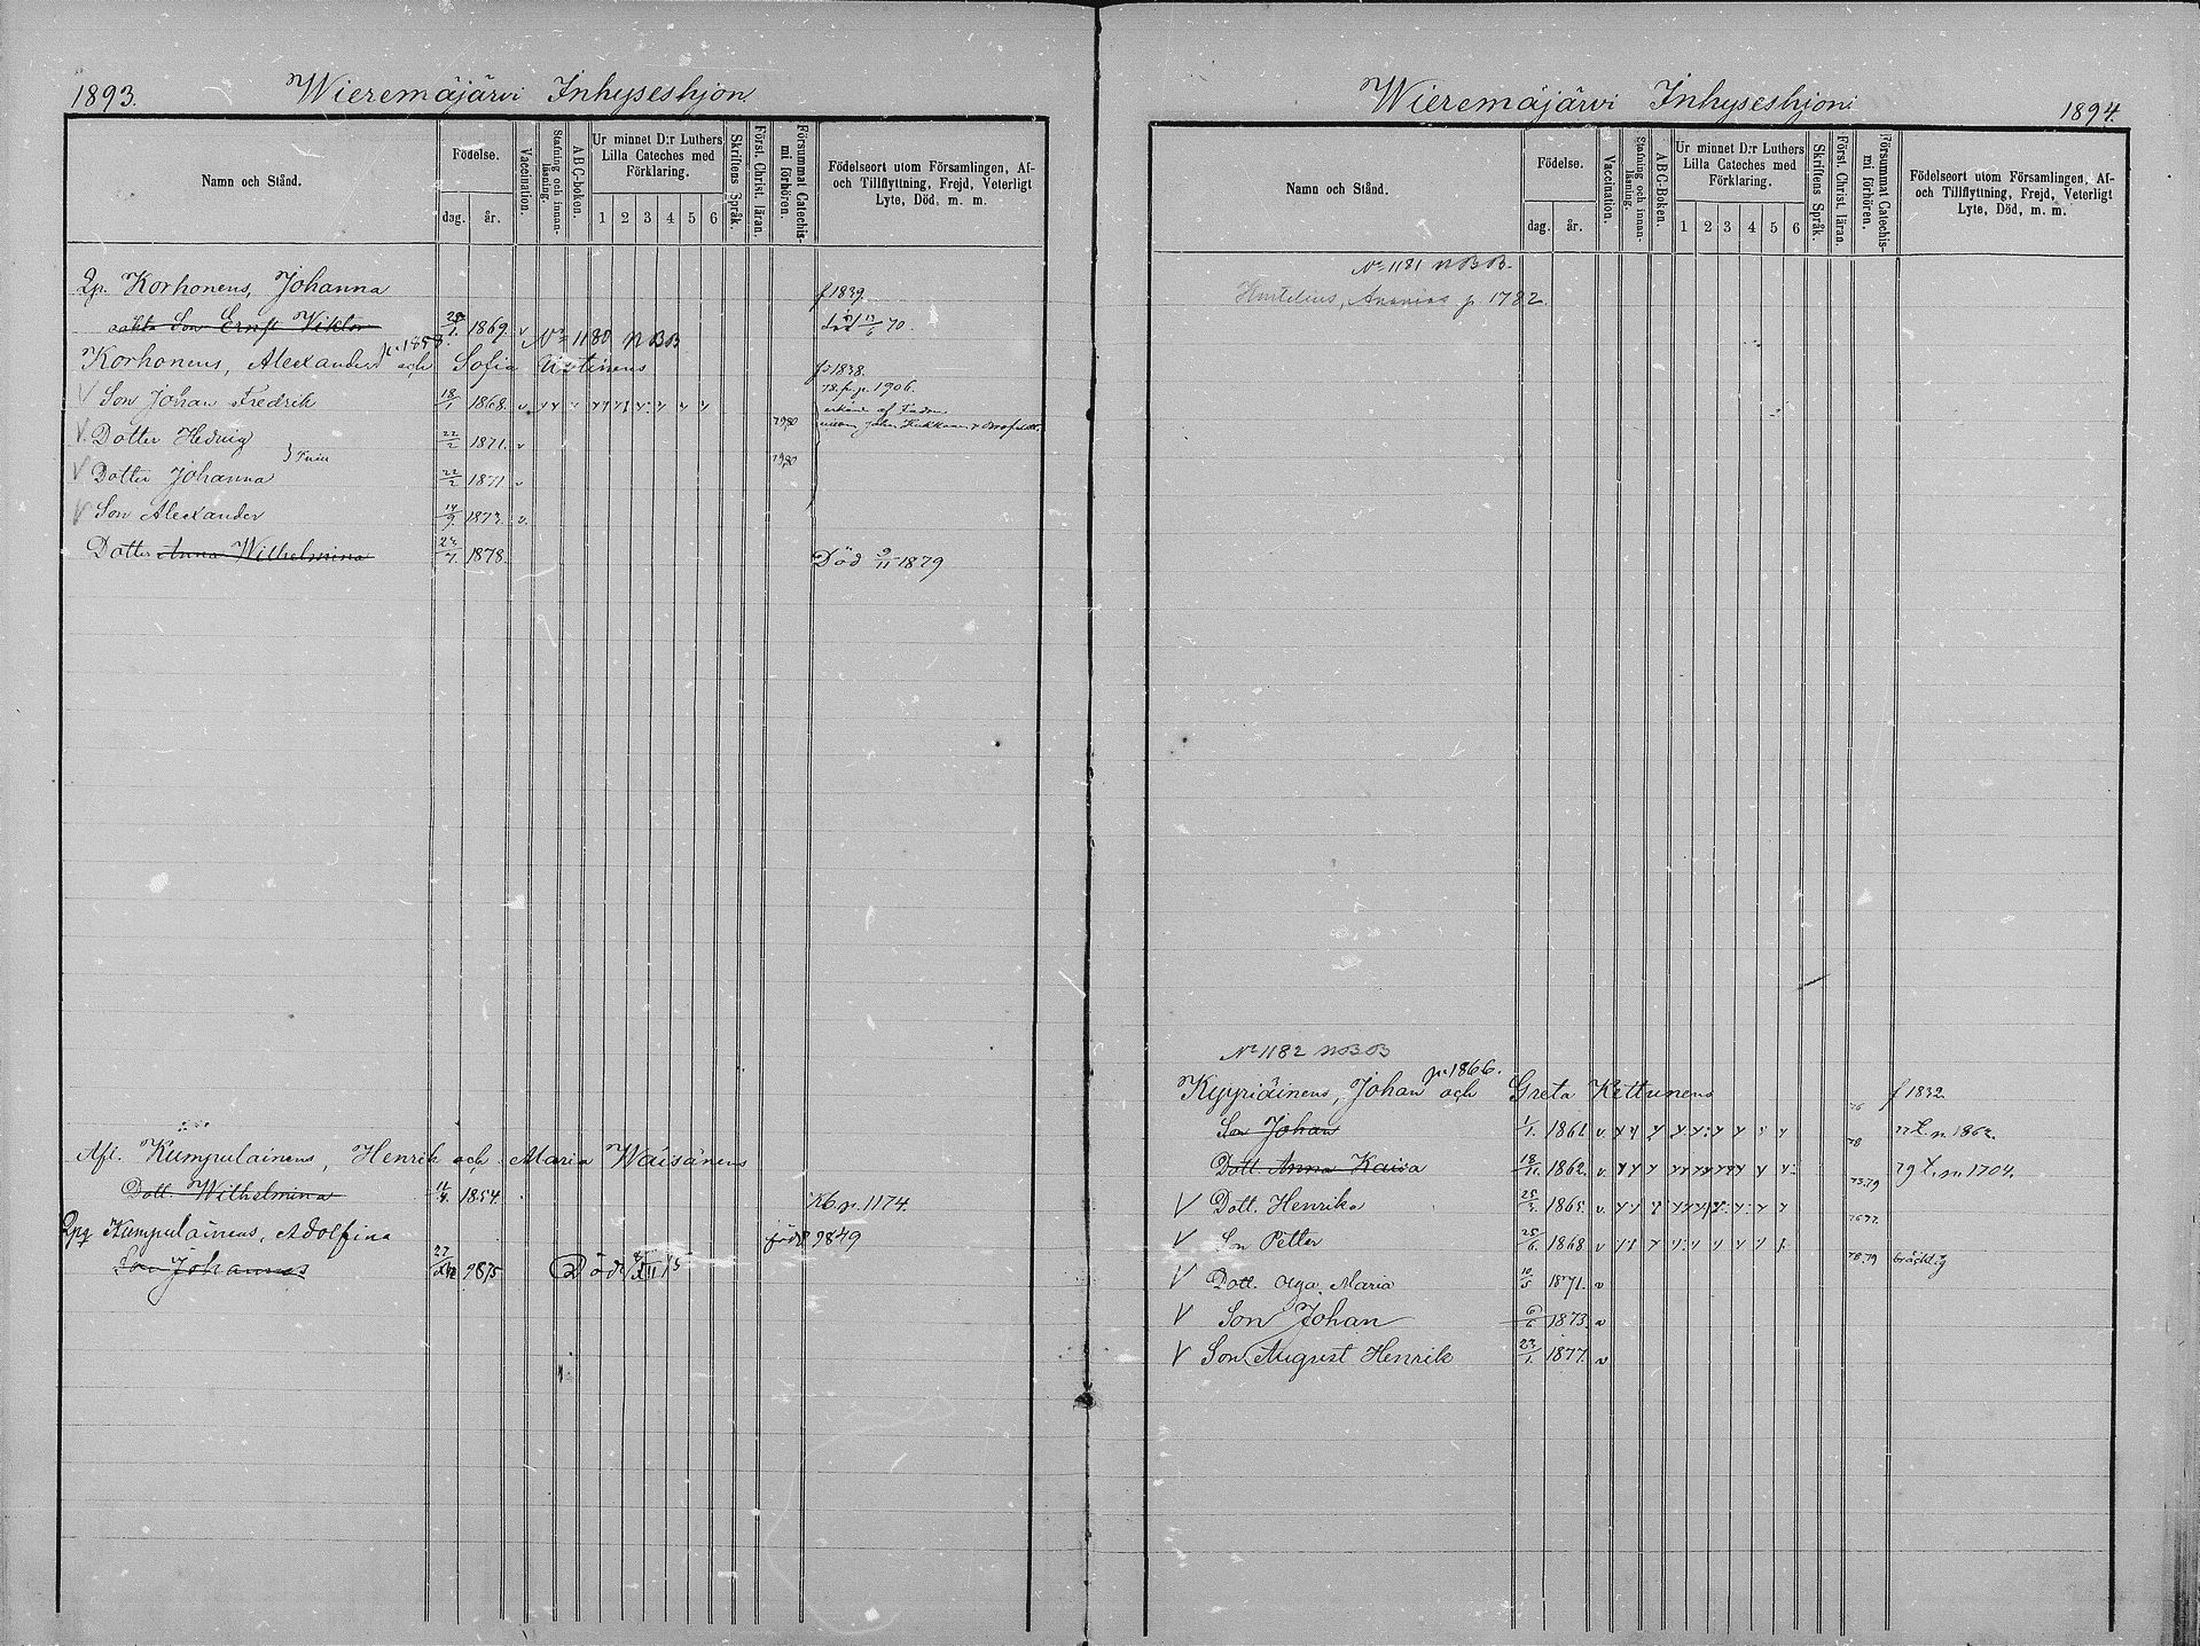 1893.
Wieremäjärvi Inhyseshjon
Namn och Stånd.
Födelse.
dag.
år.
Vaccination.
Stafning och innan-läsning.
ABC-boken.
Ur minnet D:r Luthers Lilla Cateches med Förklaring.
1 2 3 4 5 6
Skriftens Språk.
Först. Christ. läran.
Försummat Catechis-mi förhören.
Födelseort utom Församlingen, Af- och Tillflyttning, Frejd, Veterligt Lyte, Död, m. m.
Qp. Korhonens, Johanna f 1839
oäkta Son Ernst Viktor 1869. v 70.
p. 1858. No 1180 NBB
Korhonens, Alexanders och Sofia f 1838.
V Son Johan Fredrik 18/1 1868. v 78. fr. p. 1906.
V. Dotter Hedvig 22/2 1871. v 79,80
V Dotter Johanna 22/2 1871 v 79,80
V Son Alexander 14/9 1873. v.
Dotter Anna Wilhelmina 23/7. 1878. Död 9/11 1879
Afl. Kumpulainens, Henrik och Maria Wäisänens
Dott. Wilhelmina 11/4. 1854 p. 1174.
Kumpulainens, Adolfina född 1849
Son Johannes 1875 Död XII 75
Wieremäjärvi Inhyseshjon
1894.
Namn och Stånd.
Födelse.
dag.
år.
Vaccination.
Stafning och innan-läsning.
ABC-Boken.
Ur minnet D:r Luthers Lilla Cateches med Förklaring.
1 2 3 4 5 6
Skriftens Språk.
Först. Christ. läran.
Försummat Catechis-mi förhören.
Födelseort utom Församlingen, Af- och Tillflyttning, Frejd, Veterligt Lyte, Död, m. m.
No 1181 NBB.
Ananias p. 1782.
No 1182 NBB
p. 1866.
Kyyriäinens, Johan och Greta Kettunens 76 f 1832.
Son Johan 1/1. 1861 v. 78
Dott. Anna Kaisa 18/11. 1862. v. 73.79 79 t. p. 1704.
V Dott. Henrika 25/3. 1865. v. 76 77.
V Son Petter 25/6. 1868 v 78.79 bräcklig
V Dott. Olga Maria 10/5 1871. v
V Son Johan 6/6 1873. v
V Son August Henrik 23/1. 1877. v